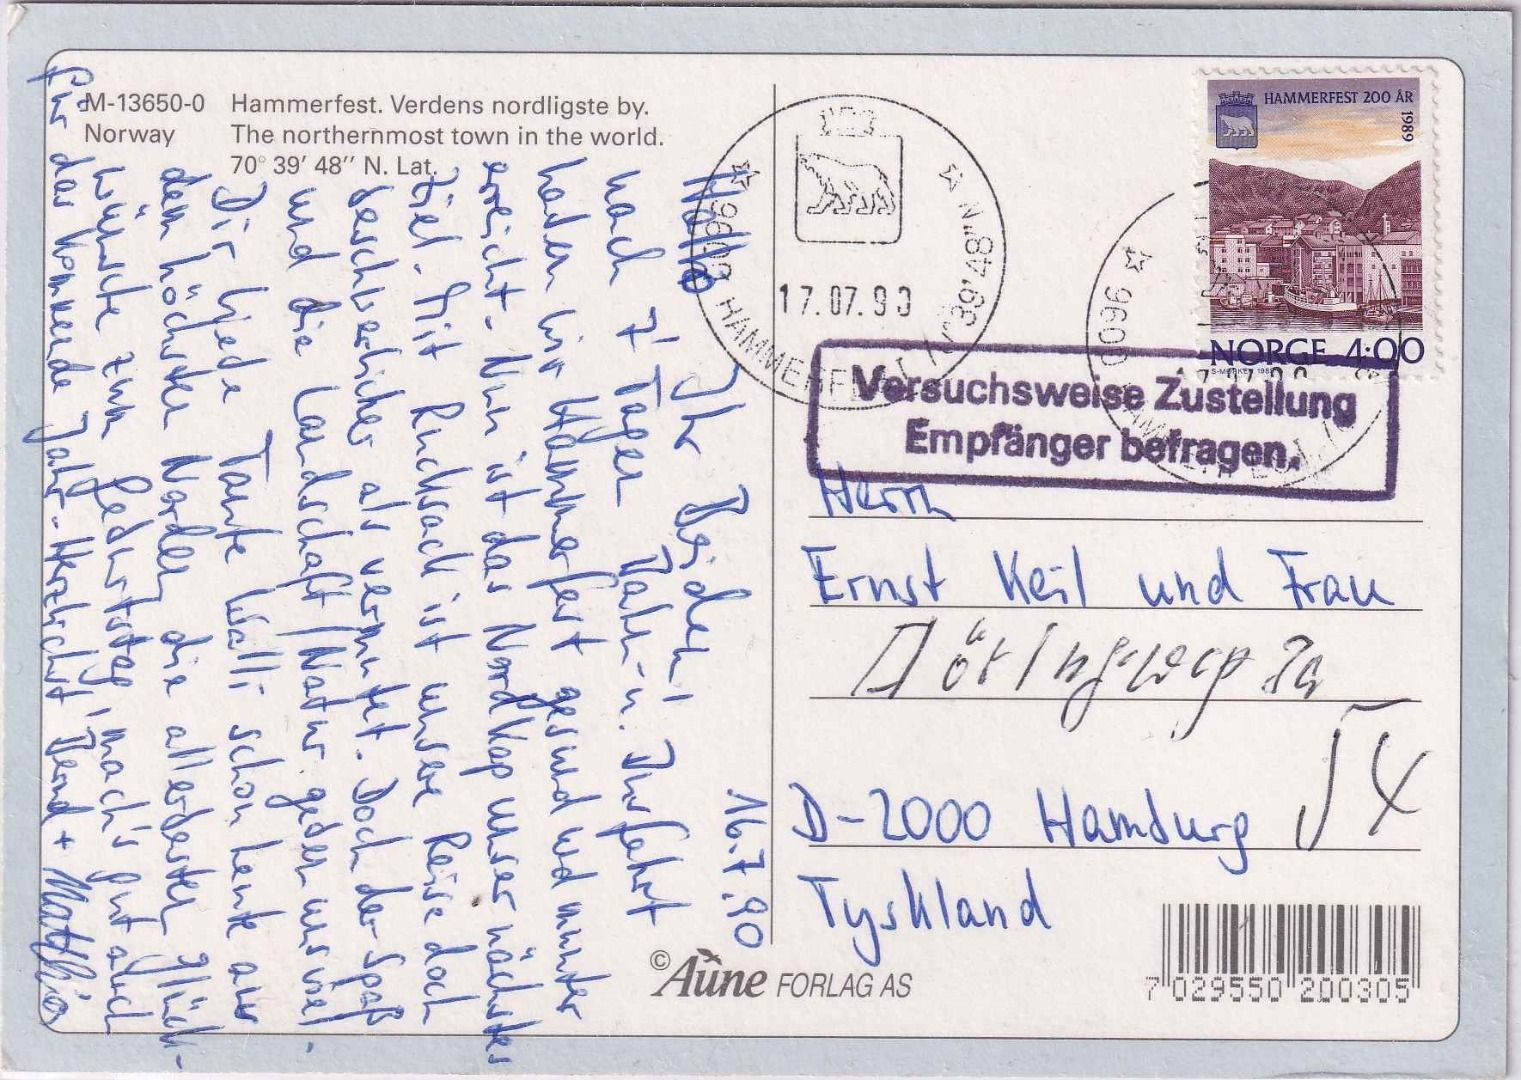 M-13650-0 Hammerfest. Verdens nordligste by.
Norway The northernmost town in the world.
70° 39' 48'' N. Lat.
16.7.90
Hallo Ihr Beiden!
Nach 7 Tagen Bahn- u. Busfahrt
haben wir Hammerfest gesund und munter
erreicht. Nun ist das Nordkap unser nächstes
Ziel. Mit Rucksack ist unsere Reise doch
beschwerlicher als vermutet. Doch der Spaß
und die Landschaft/Natur geben uns viel.
Dir liebe Tante Walli schon heute aus
dem höchsten Norden die allerbesten Glück-
wünsche zum Geburtstag, mach's gut auch
für das kommende Jahr. Herzlichst Bernd + Matthias
© Aune FORLAG AS
HAMMERFEST 200 ÅR
1989
NORGE 4:00
9600 HAMMERFEST 70°39'48" N
17.07.90
9600
17.07.90
Versuchsweise Zustellung
Empfänger befragen.
Herrn
Ernst Keil und Frau
D-2000 Hamburg 54
Tyskland
7 029550 200305